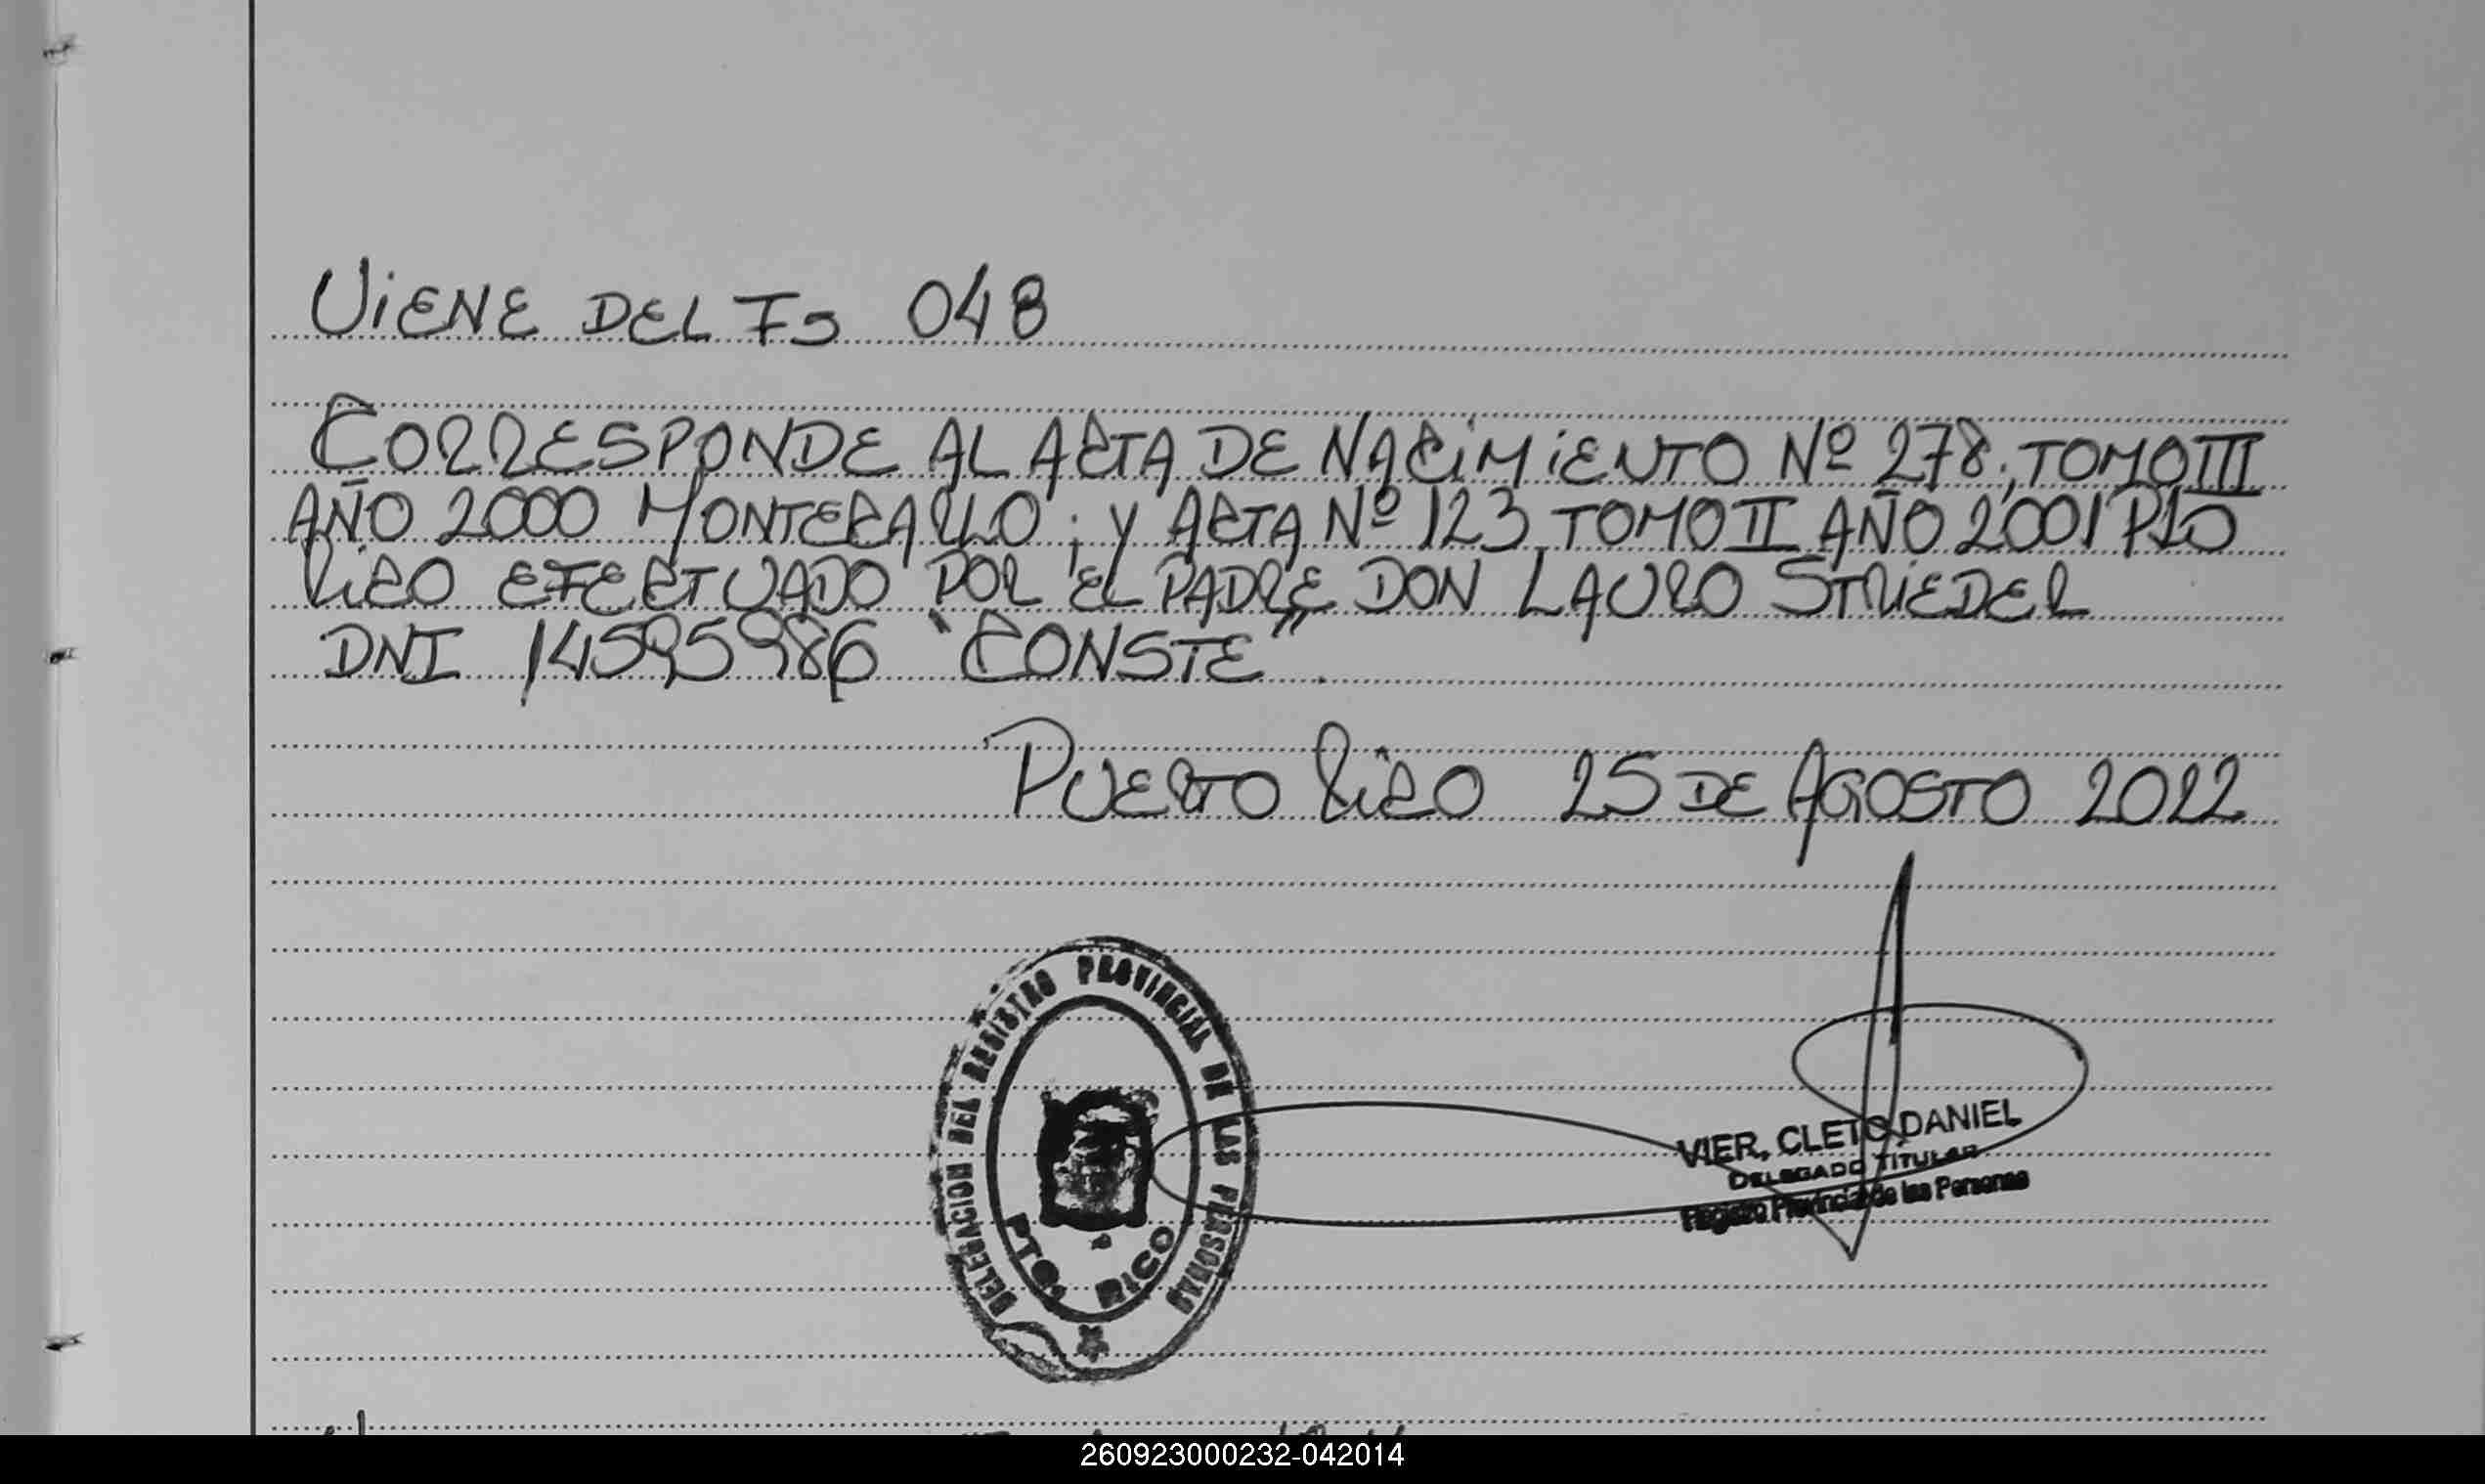 VIENE DEL Fs 048
CORRESPONDE AL ACTA DE NACIMIENTO Nº 278, TOMO III
AÑO 2000 MONTECARLO; Y ACTA Nº 123 TOMO II AÑO 2001 PTO
RICO EFECTUADO POR EL PADRE DON LAURO STRIEDER
DNI 14595986 "CONSTE".
PUERTO RICO 25 DE AGOSTO 2022
DELEGACION DEL REGISTRO PROVINCIAL DE LAS PERSONAS
PTO. RICO
VIER, CLETO DANIEL
DELEGADO TITULAR
Registro Provincial de las Personas
260923000232-042014